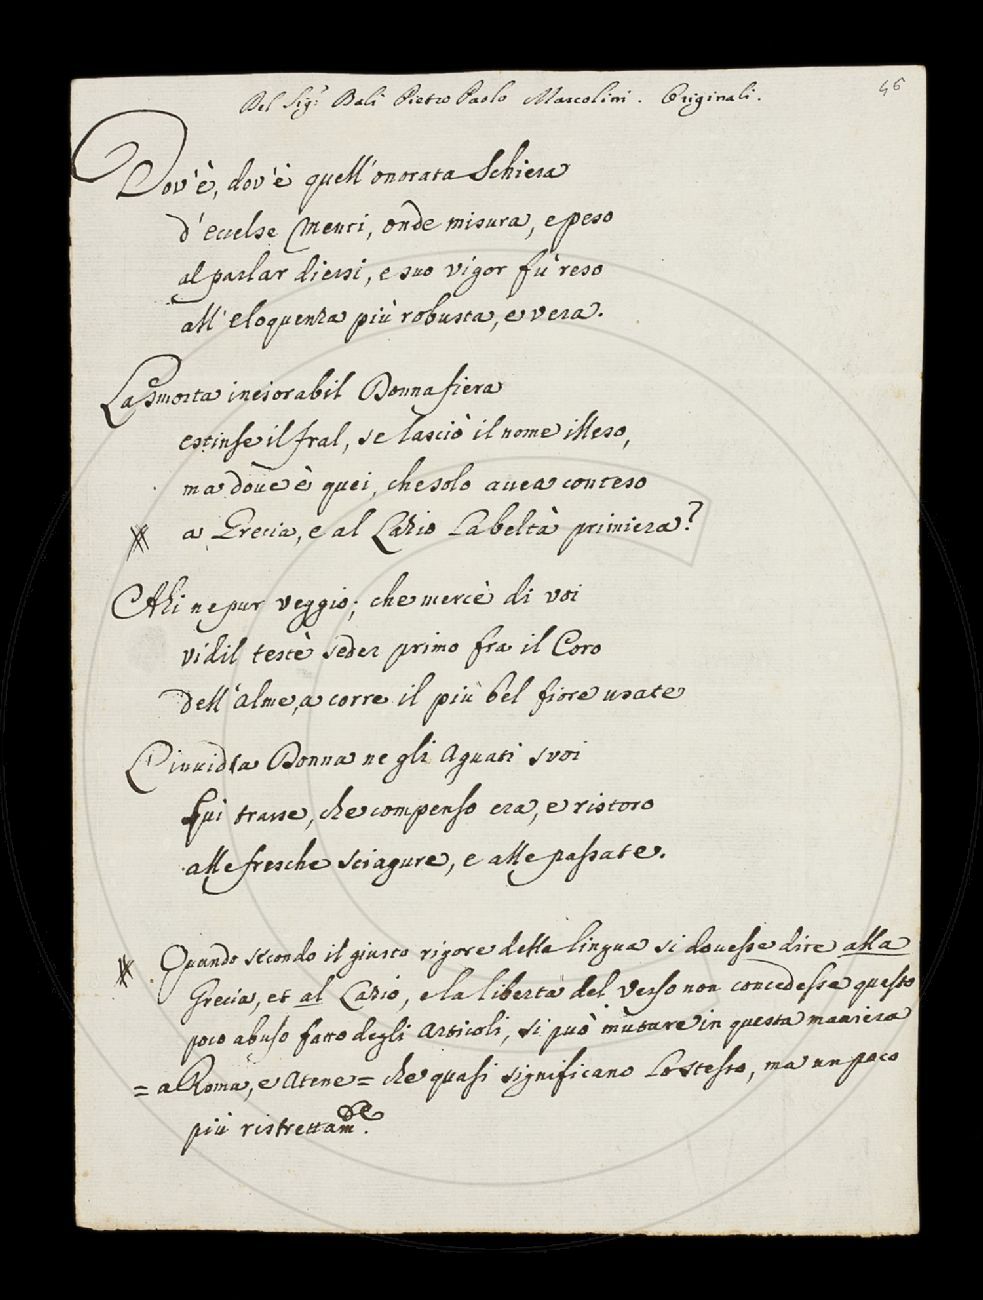 Del Sig.r Bali Pietro Paolo Marcolini. Originali.
46
Dov'è, dov'è quell'onorata Schiera
d'eccelse Menti, onde misura, e peso
al parlar diessi, e suo vigor fù reso
all'eloquenza più robusta, e vera.
La Smorta inesorabil Donna fiera
estinse il fral, se lasciò il nome illeso,
ma dove è quei, che solo avea conteso
a Grecia, e al Lazio La beltà primiera?
Ahi ne pur veggio; che mercè di voi
vidil testè seder primo fra il Coro
dell'alme, a corre il più bel fiore usate
L'invidia Donna ne gli Aguati svoi
Lui trasse, che compenso era, e ristoro
alle fresche sciagure, e alle passate.
Quando secondo il giusto rigore della lingua si dovesse dire alla
Grecia, et al Lazio, e la libertà del Verso non concedesse questo
poco abuso fatto degli Articoli, si può mutare in questa maniera
= a Roma, e Atene = che quasi significano Lo stesso, ma un poco
più ristrettam.te